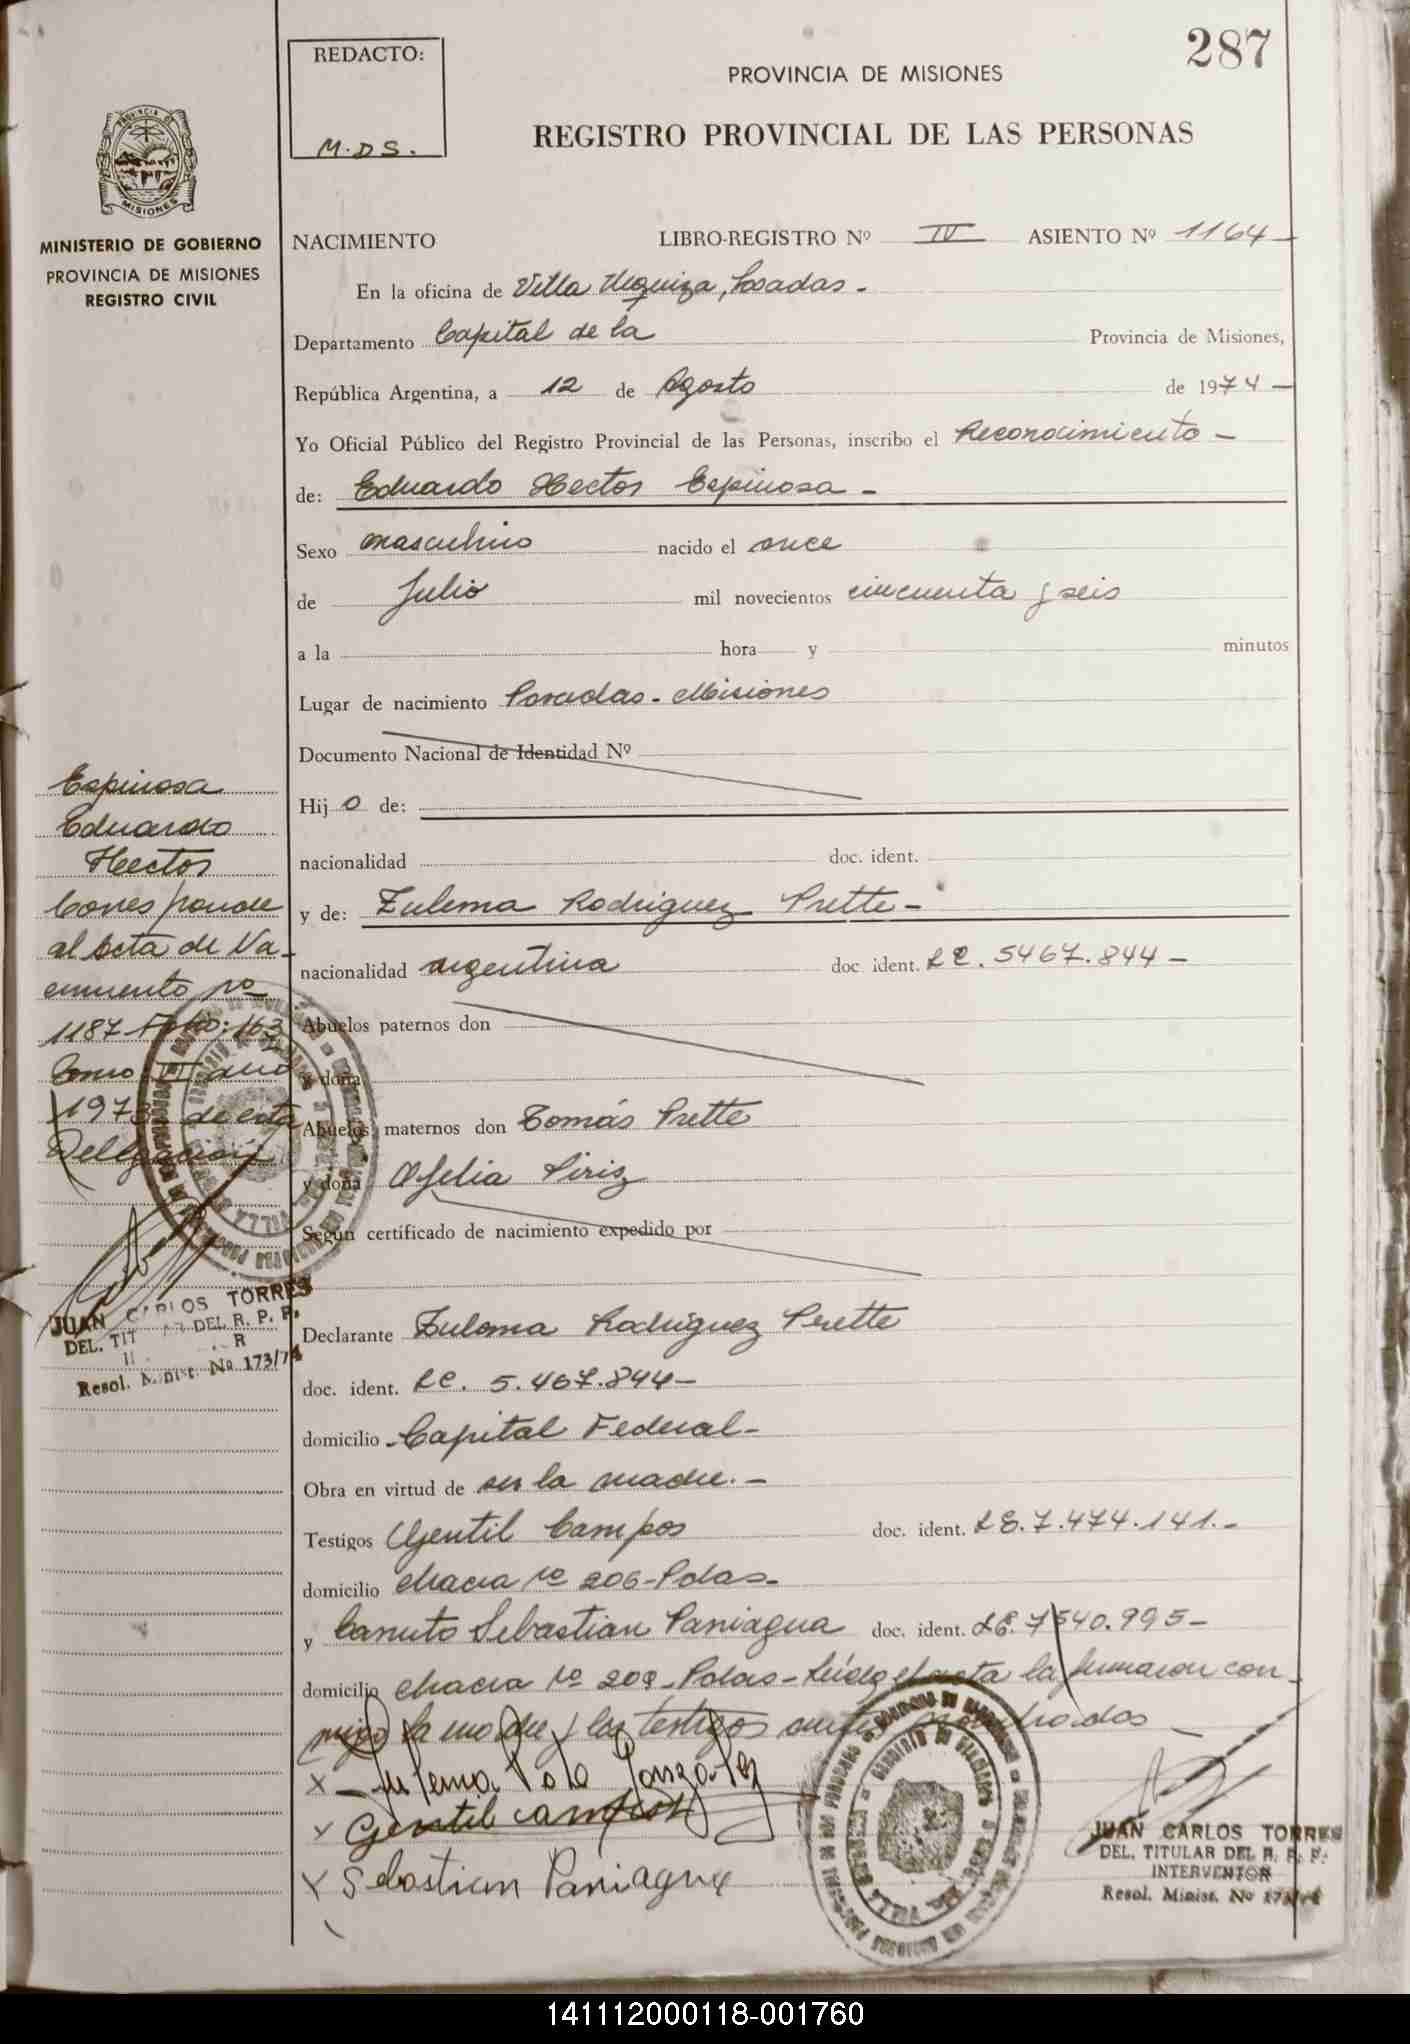 287
REDACTO:
M.D.S.
PROVINCIA DE MISIONES
REGISTRO PROVINCIAL DE LAS PERSONAS
PROVINCIA DE
MISIONES
MINISTERIO DE GOBIERNO
PROVINCIA DE MISIONES
REGISTRO CIVIL
NACIMIENTO LIBRO-REGISTRO Nº IV ASIENTO Nº 1164-
En la oficina de Villa Urquiza, Posadas-
Departamento Capital de la Provincia de Misiones,
República Argentina, a 12 de Agosto de 1974-
Yo Oficial Público del Registro Provincial de las Personas, inscribo el Reconocimiento-
de: Eduardo Hector Espinosa-
Sexo masculino nacido el once
de Julio mil novecientos cincuenta y seis
a la hora y minutos
Lugar de nacimiento Posadas-Misiones
Documento Nacional de Identidad Nº
Hijo de:
nacionalidad doc. ident.
y de: Zulema Rodriguez Prette-
nacionalidad argentina doc ident. LC. 5467.844-
Abuelos paternos don
y doña
Abuelos maternos don Tomás Prette
y doña Ofelia Piris
Según certificado de nacimiento expedido por
Declarante Zulema Rodriguez Prette
doc. ident. LC. 5.467.844-
domicilio Capital Federal-
Obra en virtud de ser la madre.-
Testigos Gentil Campos doc. ident. LE.7.474.141.-
domicilio chacra nº 206-Pdas-
y Canuto Sebastian Paniagua doc. ident. LE.7540.995-
domicilio chacra nº 209-Pdas-Leída el acta la firmaron con-
migo la madre y los testigos
Gentil Campos
Sebastian Paniagua
Espinosa
Eduardo
Hector
Corresponde
al Acta de Na-
cimiento nº
1187-Folio:163
Tomo: III año
1973- de esta
Delegación
JUAN CARLOS TORRES
DEL. TIT DEL R. P. P.
R
Resol. Minist. Nº 173/74
JUAN CARLOS TORRES
DEL. TITULAR DEL R. P. P.
INTERVENTOR
Resol. Minist. Nº 173/74
141112000118-001760